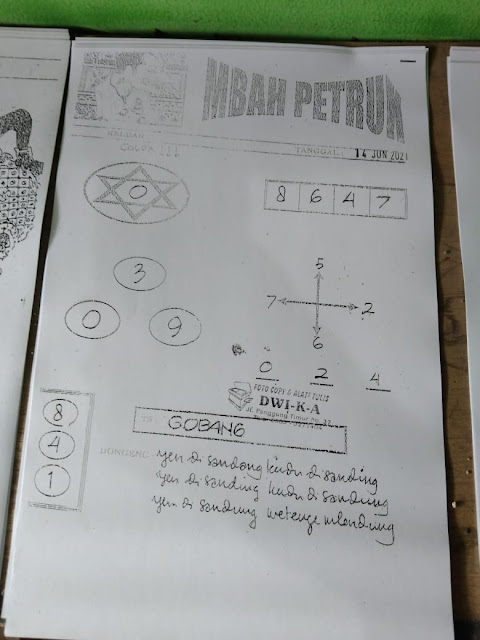 MBAH PETRUK
TANGGAL: 14 JUN 2021
0
8 6 4 7
3
0 9
5
7 2
6
0 2 4
FOTO COPY & ALAT TULIS
DWI-K-A
Jl. Panggung Timur No.
8
4
1
GOBANG
DONGENG
yen di sandang kudu disanding
yen di sanding kudu di sandung
yen di sandung wetenge mlendung